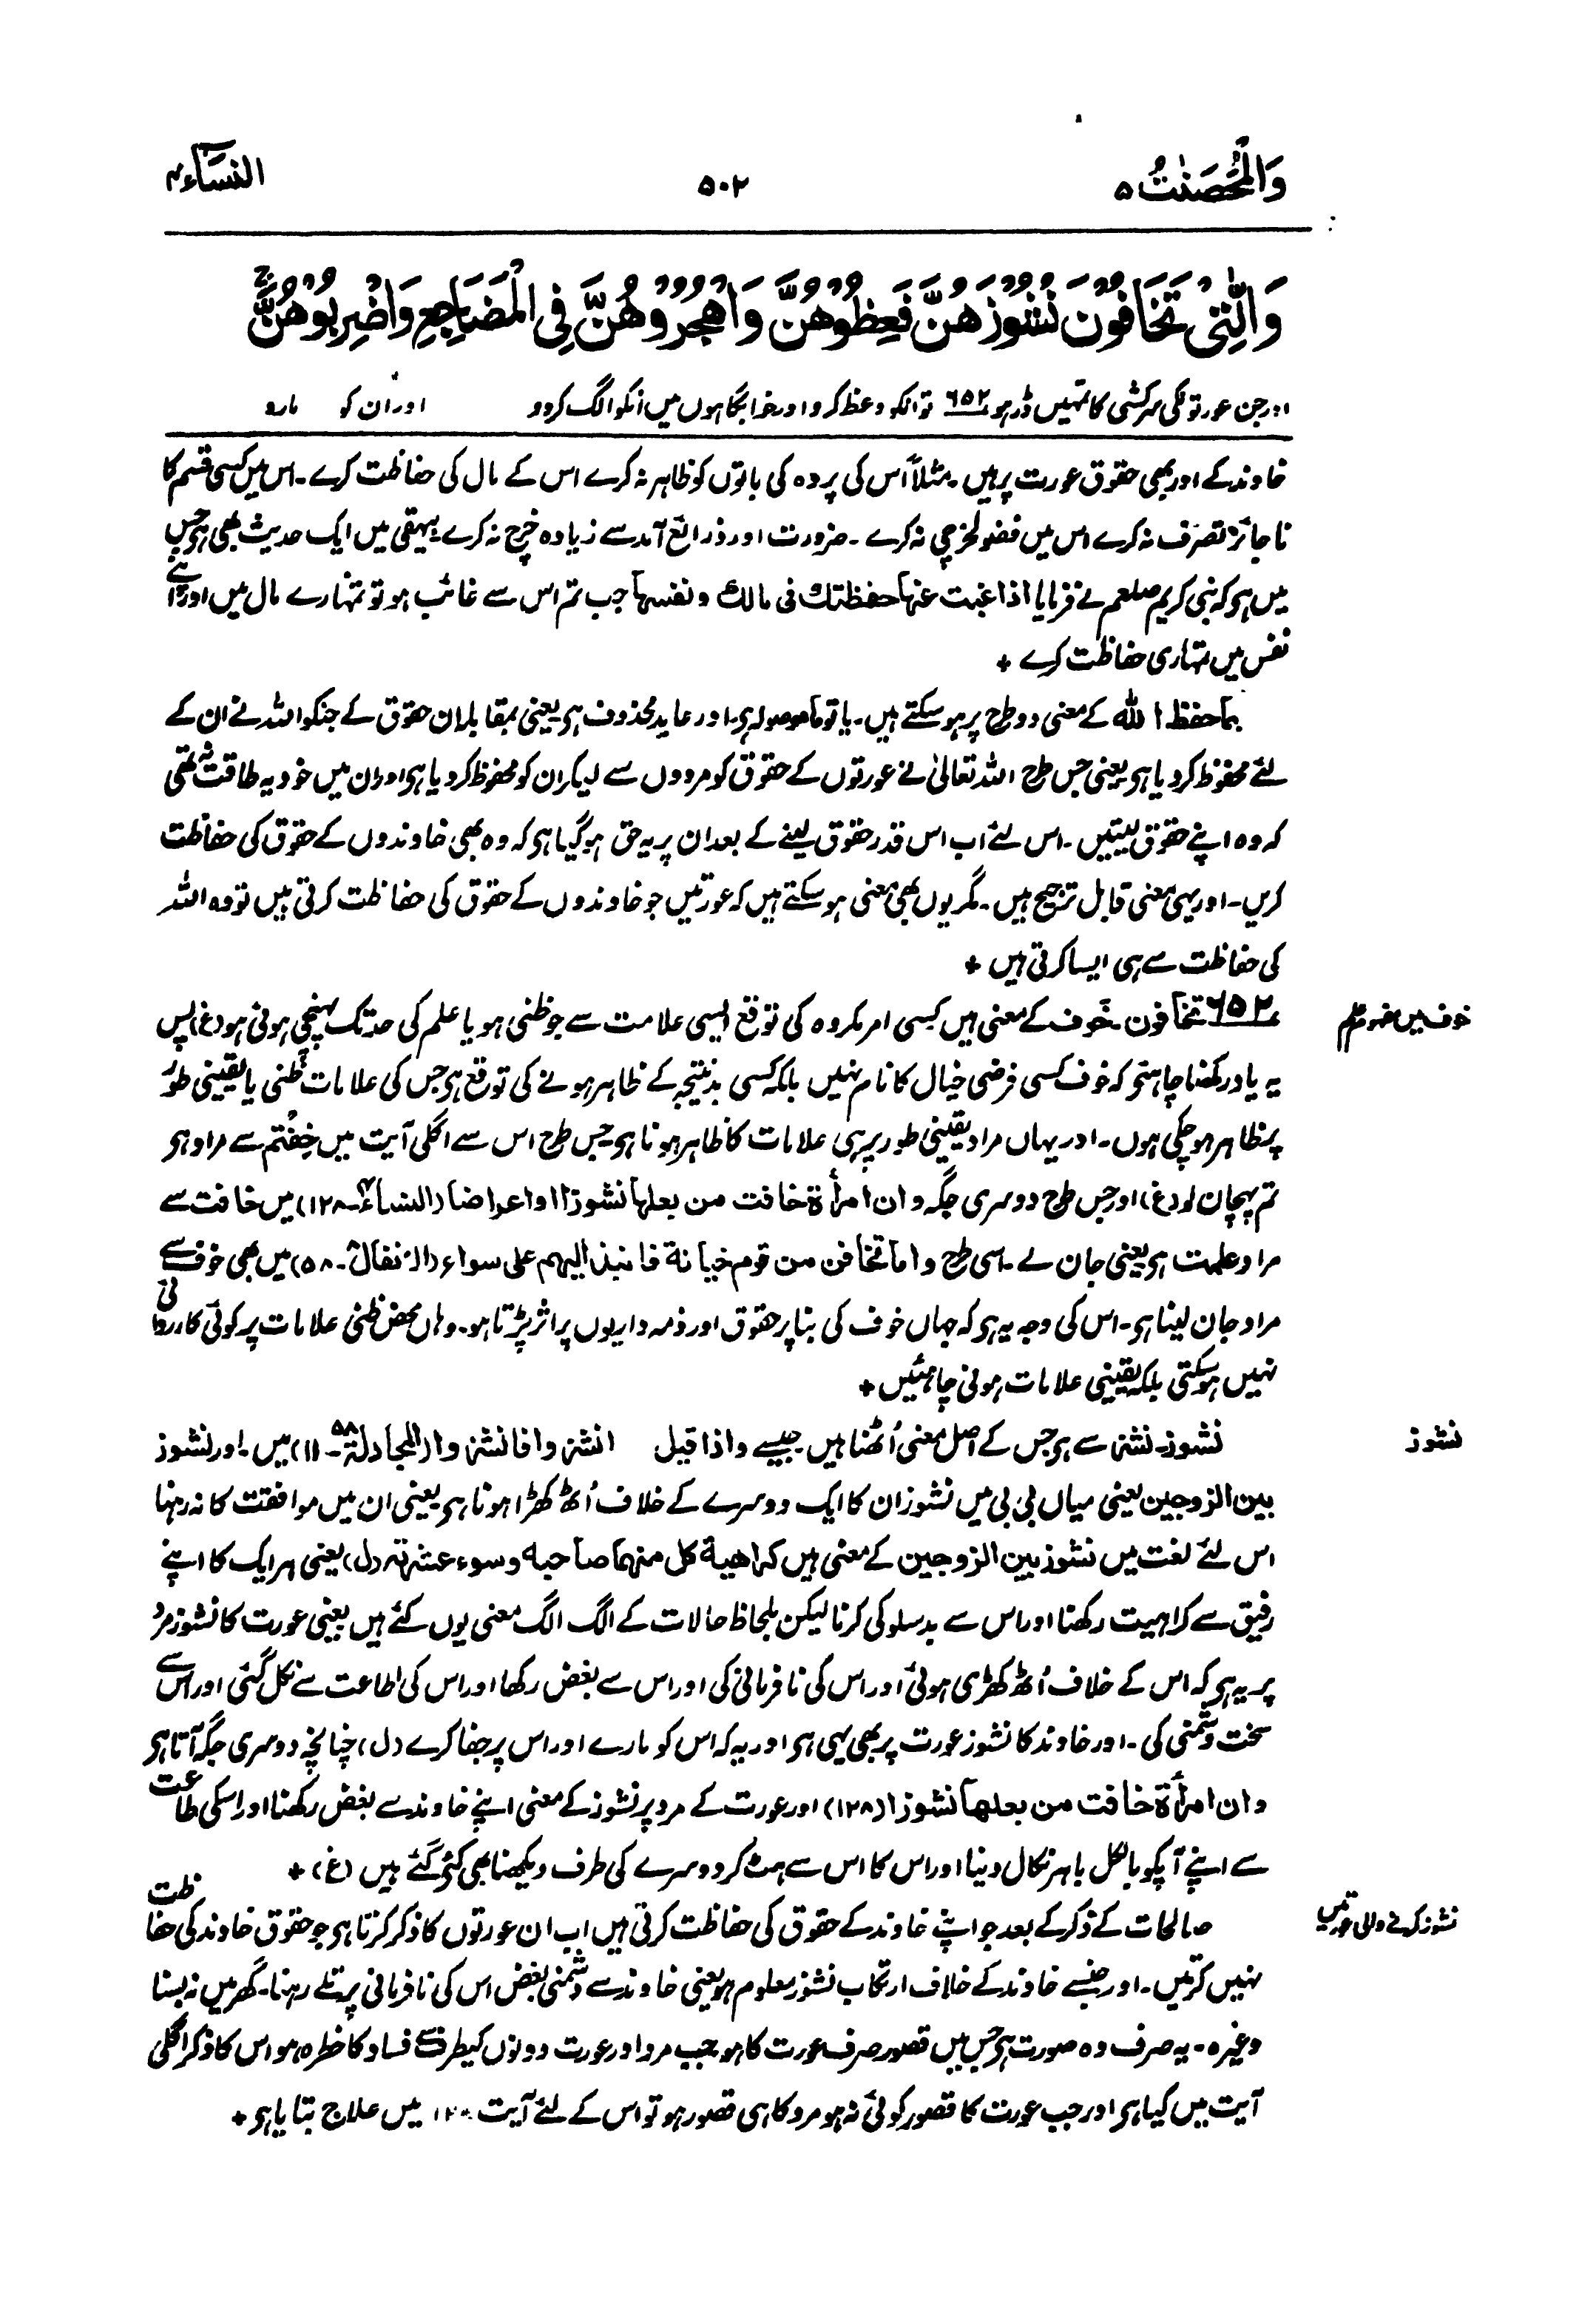 وَالْمُحْصَنٰتُ ۵
۵۰۲
النسآء ۴
وَالّٰتِیْ تَخَافُوْنَ نُشُوْزَهُنَّ فَعِظُوْهُنَّ وَاهْجُرُوْهُنَّ فِی الْمَضَاجِعِ وَاضْرِبُوْهُنَّ ۚ
اور جن عورتونکی سرکشی کا تمہیں ڈر ہو ۶۵۲ تو انکو وعظ کرو اور خوابگاہوں میں انکو الگ کردو اور ان کو مارو
خاوند کے اور بھی حقوق عورت پر ہیں۔ مثلاً اس کی پردہ کی باتوں کو ظاہر نہ کرے اس کے مال کی حفاظت کرے۔ اس میں کسی قسم کا
ناجائز تصرف نہ کرے اس میں فضولخرچی نہ کرے۔ ضرورت اور ذرائع آمد سے زیادہ خرچ نہ کرے بیہقی میں ایک حدیث بھی ہے جس
میں ہو کہ نبی کریم صلعم نے فرمایا اذا غبت عنہا حفظتك فی مالك ونفسہا جب تم اس سے غائب ہو تو تمہارے مال میں اور اپنے
نفس میں تمہاری حفاظت کرے +
بما حفظ اللہ کے معنی دو طرح پر ہو سکتے ہیں۔ یا تو ما موصولہ ہو۔ اور عاید محذوف ہو یعنی بمقابلہ ان حقوق کے جنکو اللہ نے ان کے
لئے محفوظ کر دیا ہو یعنی جس طرح اللہ تعالیٰ نے عورتوں کے حقوق کو مردوں سے لیکر ان کو محفوظ کر دیا ہو اور ان میں خود یہ طاقت نہ تھی
کہ وہ اپنے حقوق لیتیں۔ اس لئے اب اس قدر حقوق لینے کے بعد ان پر یہ حق ہو گیا ہو کہ وہ بھی خاوندوں کے حقوق کی حفاظت
کریں۔ اور یہی معنی قابل ترجیح ہیں۔ مگر یوں بھی معنی ہو سکتے ہیں کہ عورتیں جو خاوندوں کے حقوق کی حفاظت کرتی ہیں تو وہ اللہ
کی حفاظت سے ہی ایسا کرتی ہیں +
خوف میں مفہوم علم
۶۵۲ تخافون۔ خوف کے معنی ہیں کسی امر مکروہ کی توقع ایسی علامت سے جو ظنی ہو یا علم کی حد تک پہنچی ہوئی ہو (غ) پس
یہ یاد رکھنا چاہئو کہ خوف کسی فرضی خیال کا نام نہیں بلکہ کسی بدنتیجہ کے ظاہر ہونے کی توقع ہو جس کی علامات ظنی یا یقینی طور
پر ظاہر ہو چکی ہوں۔ اور یہاں مراد یقینی طور پر ہی علامات کا ظاہر ہونا ہو جس طرح اس سے اگلی آیت میں خِفْتُم سے مراد ہو
تم پہچان لو (غ) اور جس طرح دوسری جگہ وان امرأة خافت من بعلہا نشوزا او اعراضا (النساء۴۔ ۱۲۸) میں خافت سے
مراد علمت ہو یعنی جان لے۔ اسی طرح واما تخافن من قوم خیانة فانبذ الیہم علی سواء (الانفال۸۔ ۵۸) میں بھی خوف سے
مراد جان لینا ہو۔ اس کی وجہ یہ ہو کہ جہاں خوف کی بنا پر حقوق اور ذمہ داریوں پر اثر پڑتا ہو۔ وہاں محض ظنی علامات پر کوئی کارروائی
نہیں ہو سکتی بلکہ یقینی علامات ہونی چاہئیں +
نشوز
نشوز۔ نشز سے ہو جس کے اصل معنی اُٹھنا ہیں جیسے واذا قیل انشزوا فانشزوا (المجادلة۵۸۔ ۱۱) میں۔ اور نشوز
بین الزوجین یعنی میاں بی بی میں نشوز ان کا ایک دوسرے کے خلاف اُٹھ کھڑا ہونا ہو یعنی ان میں موافقت کا نہ رہنا
اس لئے لغت میں نشوز بین الزوجین کے معنی ہیں کراھیة کل منہما صاحبه وسوء عشرته (ل) یعنی ہر ایک کا اپنے
رفیق سے کراہیت رکھنا اور اس سے بدسلوکی کرنا لیکن بلحاظ حالات کے الگ الگ معنی یوں کئے ہیں یعنی عورت کا نشوز مرد
پر یہ ہو کہ اس کے خلاف اُٹھ کھڑی ہوئی اور اس کی نافرمانی کی اور اس سے بغض رکھا اور اس کی اطاعت سے نکل گئی اور اس سے
سخت دشمنی کی۔ اور خاوند کا نشوز عورت پر بھی یہی ہو اور یہ کہ اس کو مارے اور اس پر جفا کرے (ل) چنانچہ دوسری جگہ آتا ہو
وان امرأة خافت من بعلھا نشوزا (۱۲۸) اور عورت کے مرد پر نشوز کے معنی اپنے خاوند سے بغض رکھنا اور اسکی طاعت
سے اپنے آپکو بالکل باہر نکال دینا اور اس کا اس سے ہٹ کر دوسرے کی طرف دیکھنا بھی کئے گئے ہیں (غ) +
نشوز کرنے والی عورتیں
صالحات کے ذکر کے بعد جو اپنے خاوند کے حقوق کی حفاظت کرتی ہیں اب ان عورتوں کا ذکر کرتا ہو جو حقوق خاوند کی حفاظت
نہیں کرتیں۔ اور جنسے خاوند کے خلاف ارتکاب نشوز معلوم ہو یعنی خاوند سے دشمنی بغض اس کی نافرمانی پر تلے رہنا۔ گھر میں نہ بسنا
وغیرہ۔ یہ صرف وہ صورت ہو جس میں قصور صرف عورت کا ہو جب مرد اور عورت دونوں کیطرف سے فساد کا خطرہ ہو اس کا ذکر اگلی
آیت میں کیا ہو اور جب عورت کا قصور کوئی نہ ہو مرد کا ہی قصور ہو تو اس کے لئے آیت میں علاج بتایا ہو +